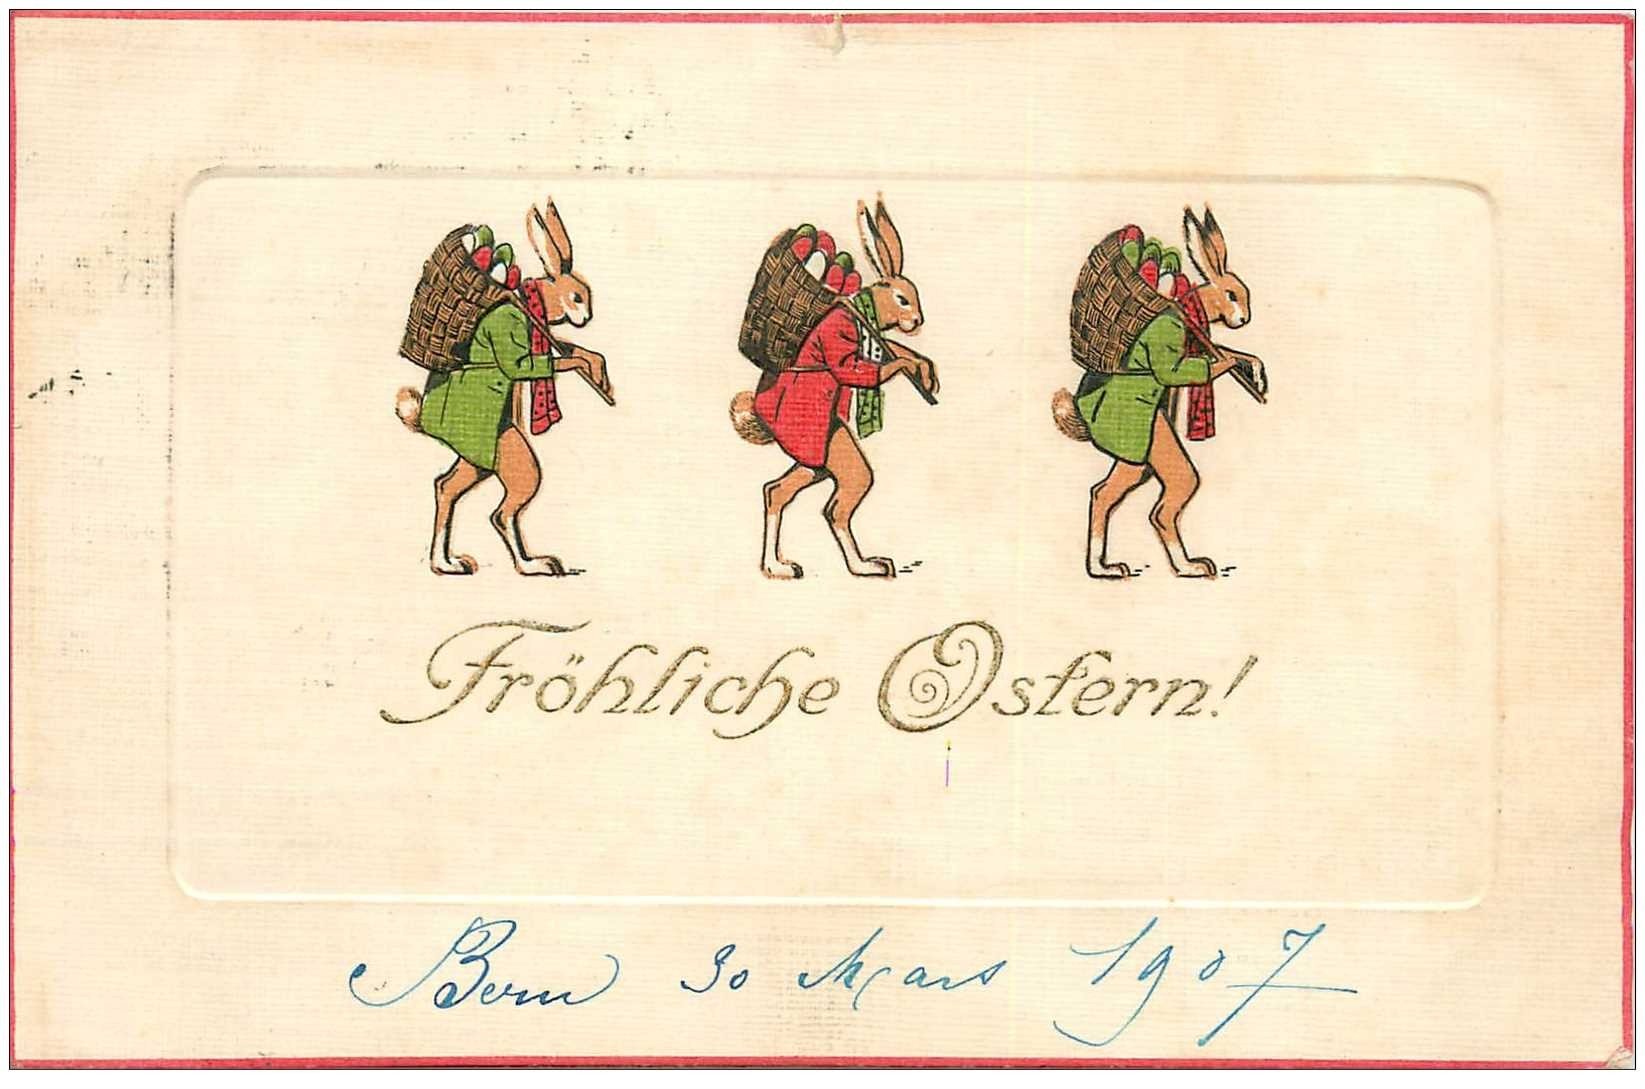 Fröhliche Ostern!
Bern 30 Mars 1907